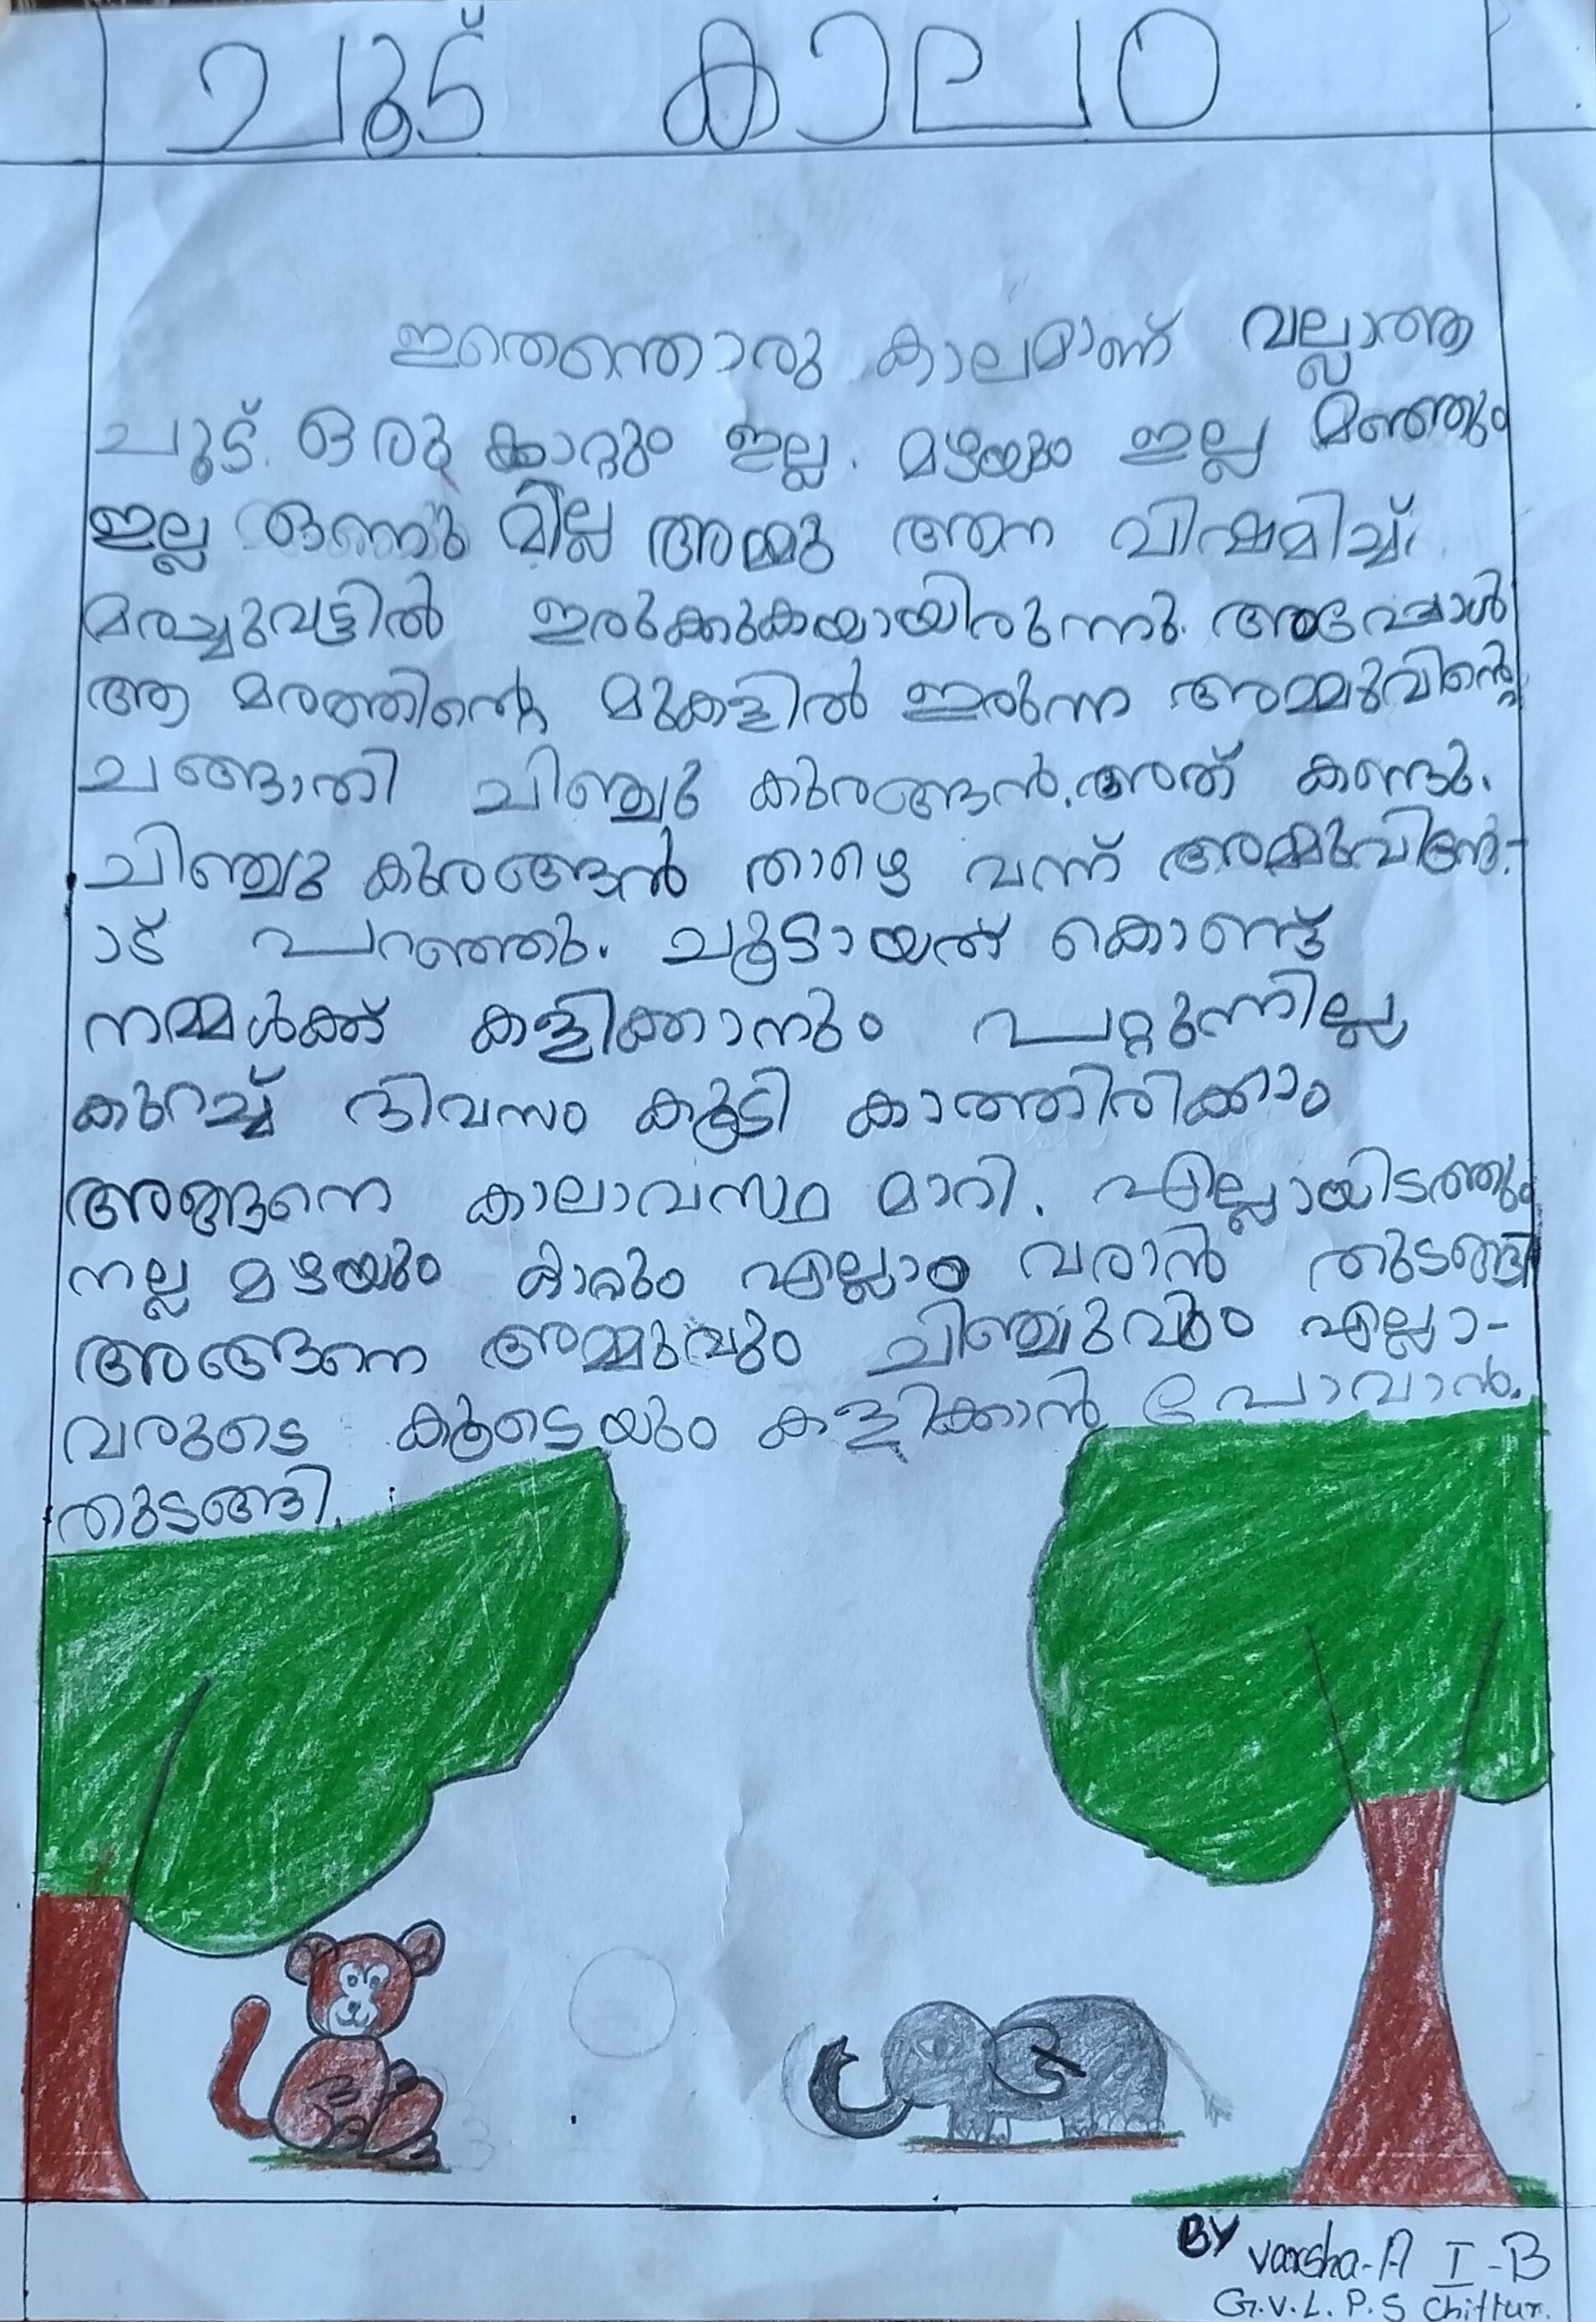 ചൂട് കാലം
ഇതെന്തൊരു കാലമാണ് വല്ലാത്ത
ചൂട്. ഒരു കാറ്റും ഇല്ല. മഴയും ഇല്ല മഞ്ഞും
ഇല്ല ഒന്നു മില്ല അമ്മു ആന വിഷമിച്ച്
മരച്ചുവട്ടിൽ ഇരുക്കുകയായിരുന്നു. അപ്പോൾ
ആ മരത്തിന്റെ മുകളിൽ ഇരുന്ന അമ്മുവിന്റെ
ചങ്ങാതി ചിഞ്ചു കുരങ്ങൻ. അത് കണ്ടു.
ചിഞ്ചു കുരങ്ങൻ താഴെ വന്ന് 
ാട് പറഞ്ഞു. ചൂടായത് കൊണ്ട്
നമ്മൾക്ക് കളിക്കാനും പറ്റുന്നില്ല
കുറച്ച് ദിവസം കൂടി കാത്തിരിക്കാം
അങ്ങനെ കാലാവസ്ഥ മാറി. എല്ലായിടത്തും
നല്ല മഴയും കാറ്റും എല്ലാം വരാൻ തുടങ്ങി
അങ്ങനെ അമ്മുവും ചിഞ്ചുവും എല്ലാ-
വരുടെ കൂടെയും കളിക്കാൻ പോവാൻ.
തുടങ്ങി.
BY Varsha-A I-B
G.V.L.P.S Chittur.